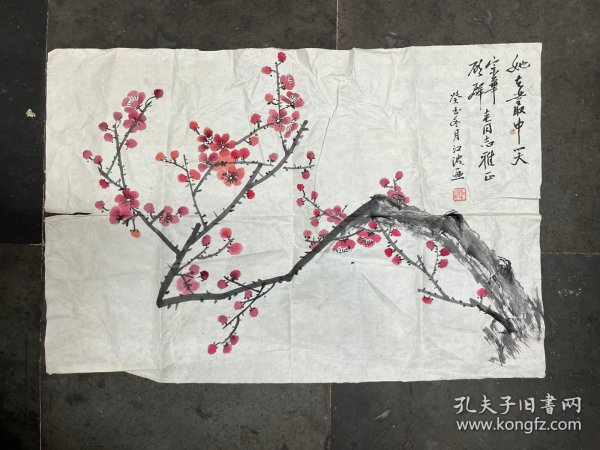 她在丛中笑
宗华
启群 老同志雅正
癸亥冬月江波画
孔夫子旧书网
www.kongfz.com